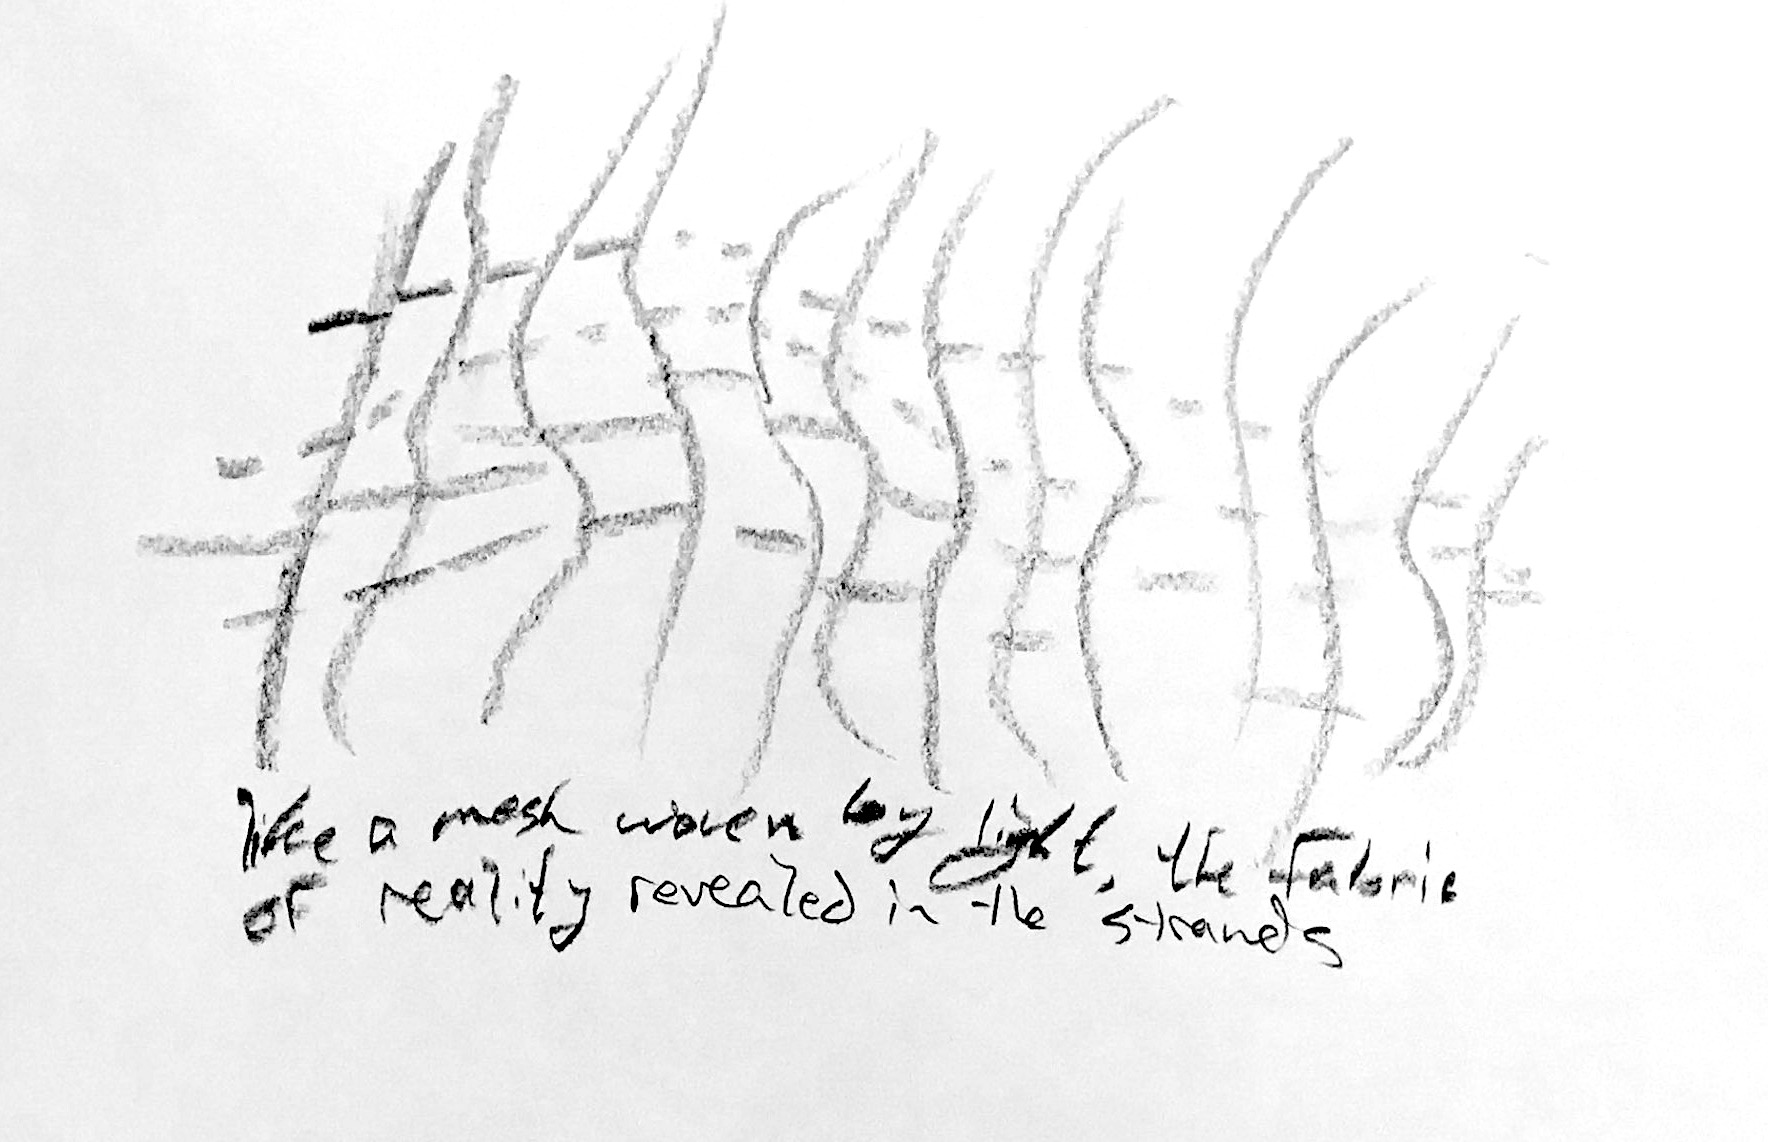 like a mesh woven by light, the fabric
of reality revealed in the strands